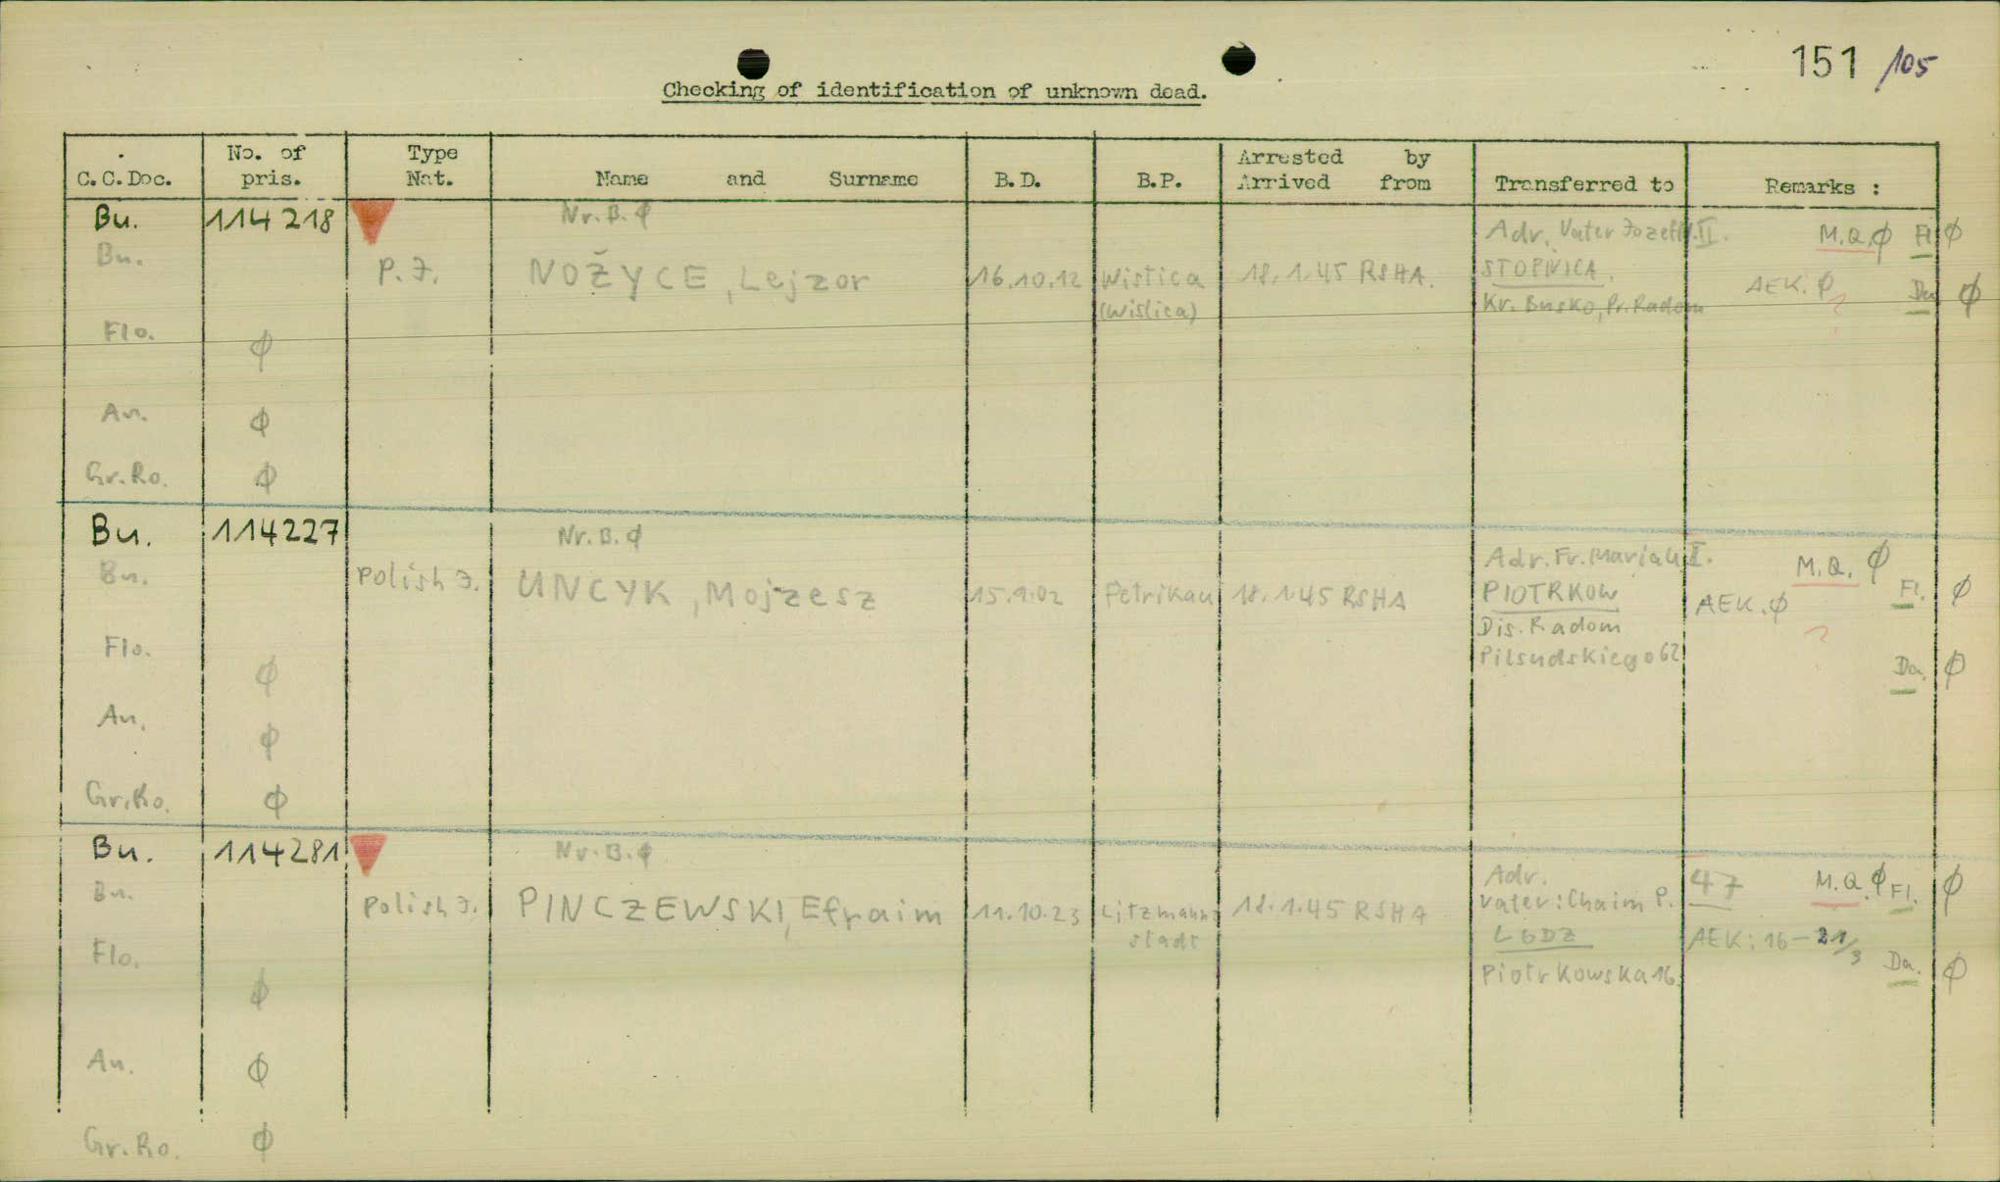 151 /105
Checking of identification of unknown dead.
C.C.Doc. No. of pris. Type Nat. Name and Surname B.D. B.P. Arrested by Arrived from Transferred to Remarks :
Bu. 114 218 Nr. B. ϕ Adr. Vater Jozef II. M.Q. ϕ Fl. ϕ
Bu. P. J. NOŽYCE, Lejzor 16.10.12 Wistica 18.1.45 RSHA. STOPNICA. AEK. ϕ ? Da ϕ
(Wislica) Kr. Busko, Pr. Radom
Flo. ϕ
An. ϕ
Gr.Ro. ϕ
Bu. 114227 Nr. B. ϕ Adr. Fr. Maria U. II. M.Q. ϕ
Bu. Polish J. UNCYK, Mojzesz 15.9.02 Petrikau 18.1.45 RSHA PIOTRKOW AEK. ϕ Fl. ϕ
Dis. Radom ?
Flo. ϕ Pilsudskiego 62 Da. ϕ
An. ϕ
Gr.Ro. ϕ
Bu. 114281 Nr. B. ϕ Adr. 47 M.Q. ϕ Fl. ϕ
Bu. Polish J. PINCZEWSKI, Efraim 11.10.23 Litzmann 18.1.45 RSHA Vater: Chaim P.
stadt LODZ AEK: 16-21/3
Flo. ϕ Piotrkowska 16. Da. ϕ
An. ϕ
Gr.Ro. ϕ